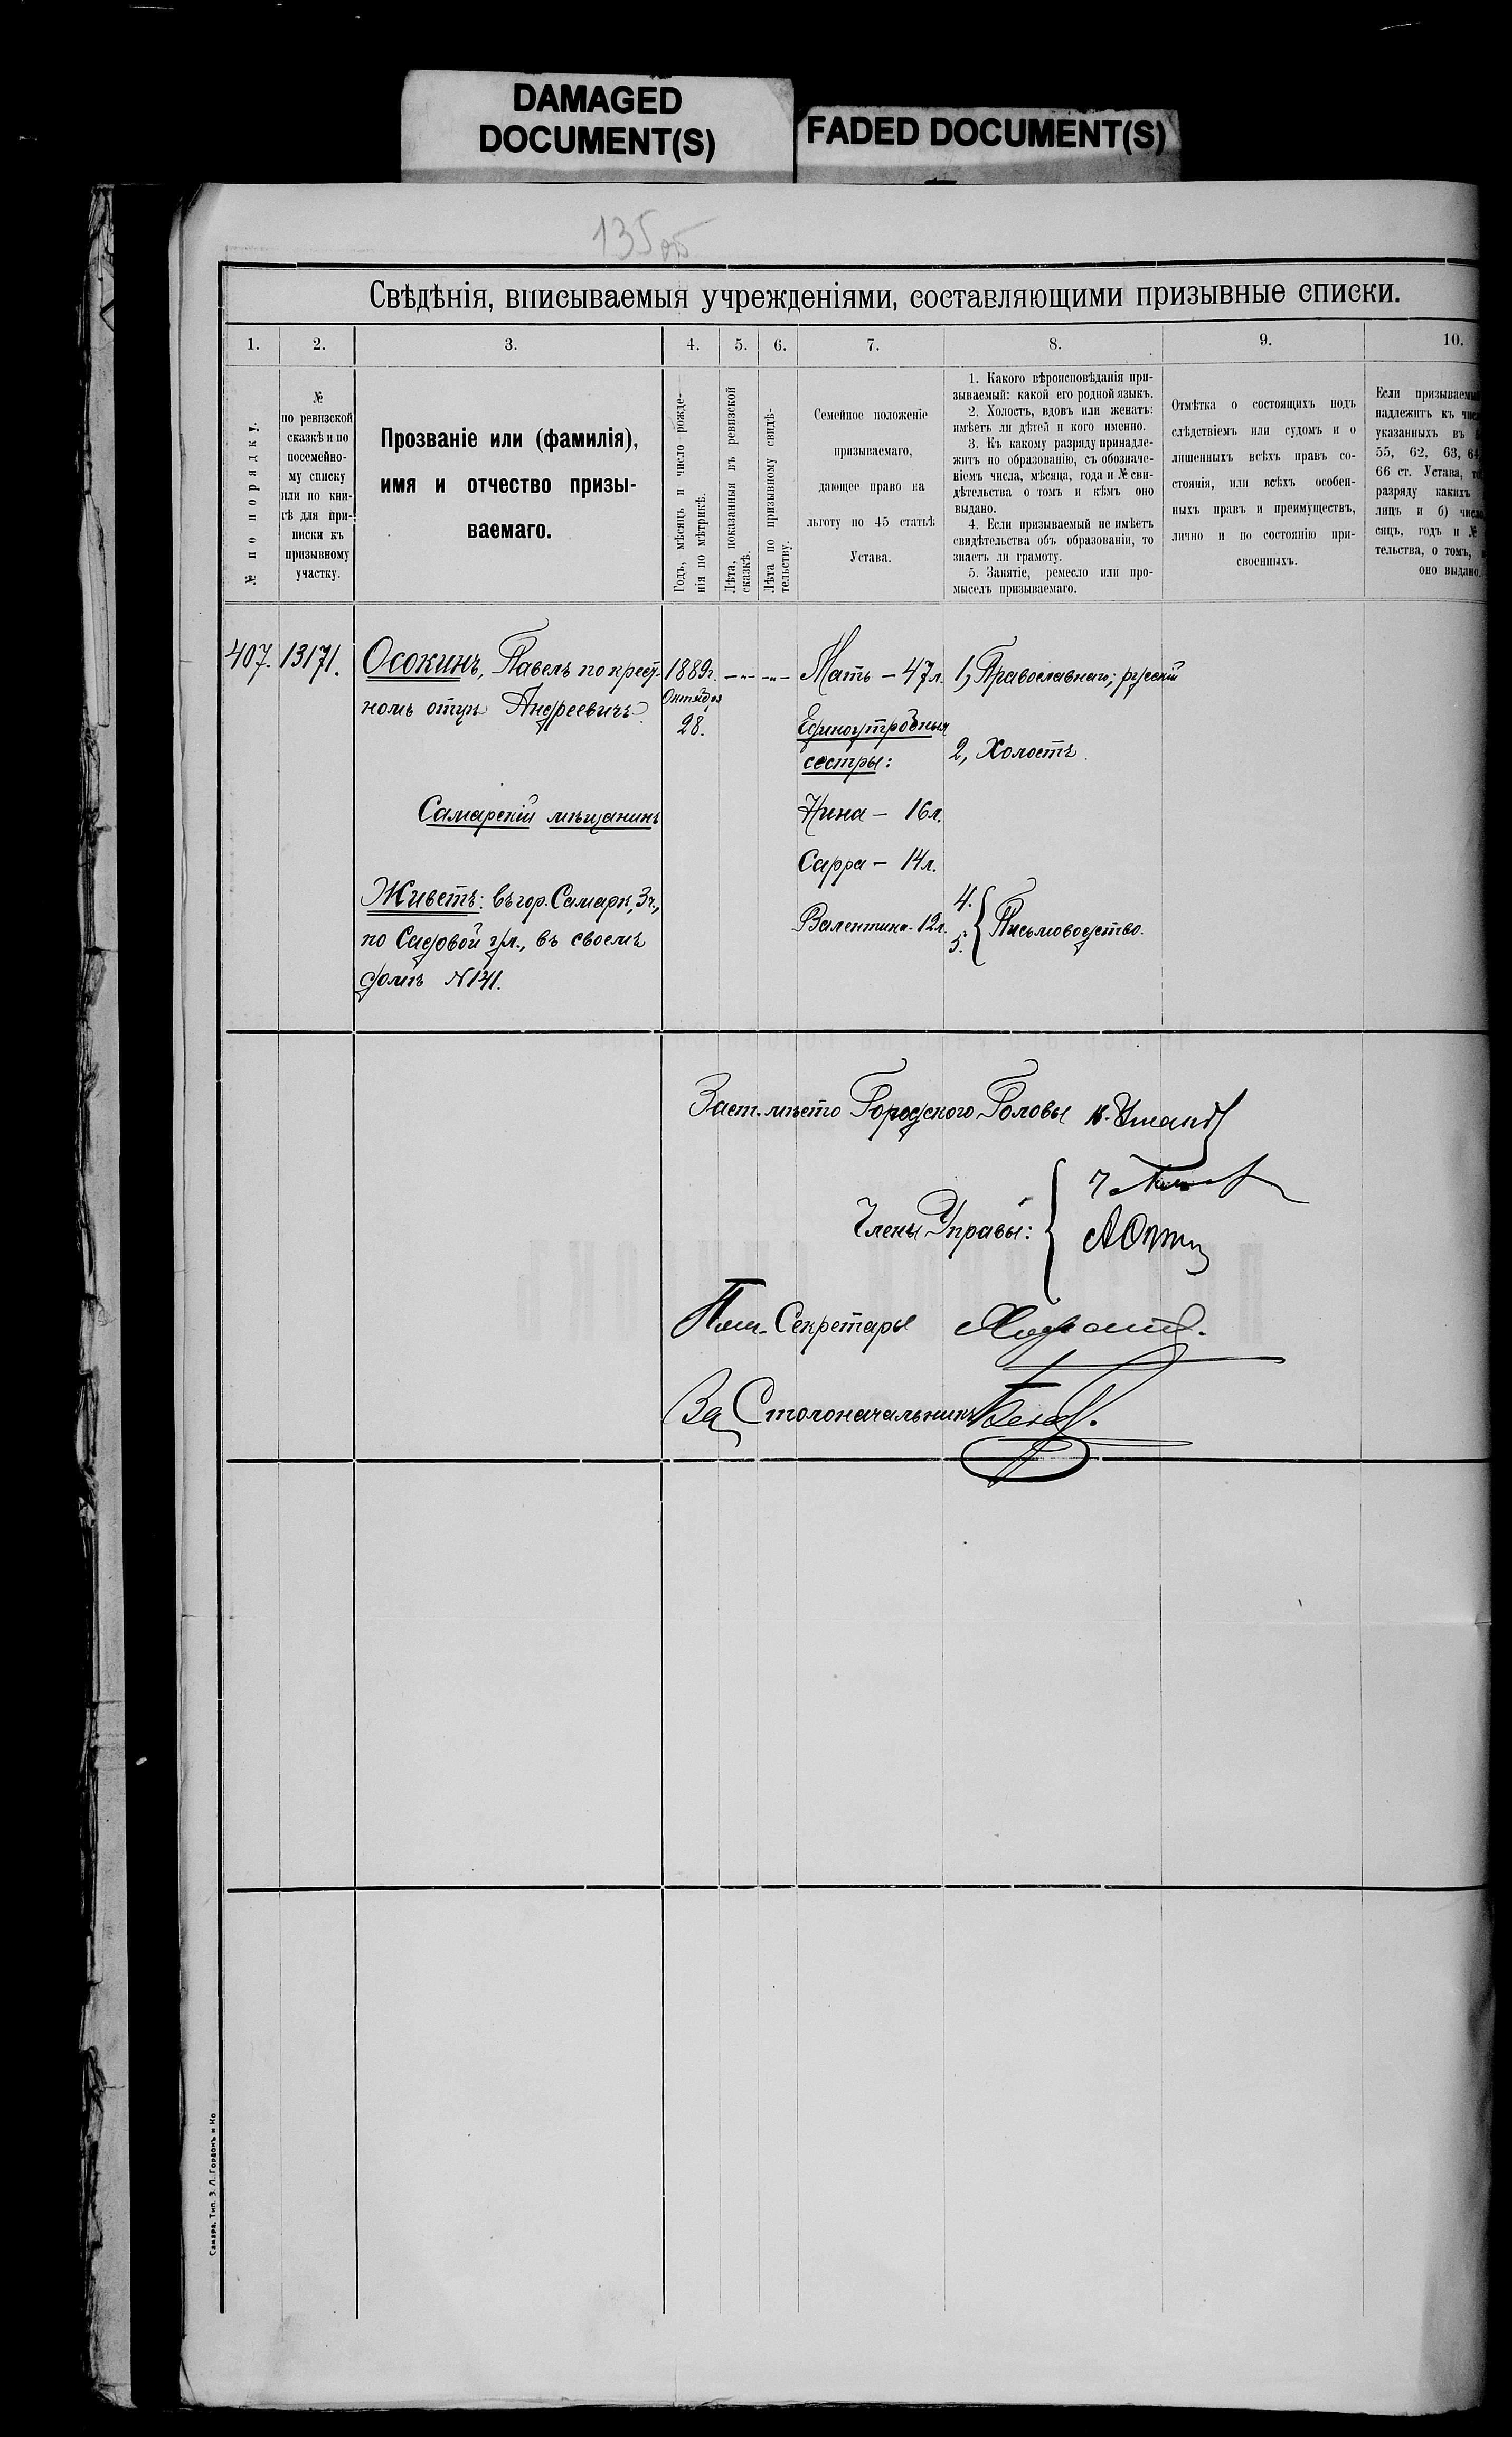 DAMAGED
DOCUMENT(S)
FADED DOCUMENT(S)
135об
Свѣдѣнія, вписываемыя учрежденіями, составляющими призывные списки.
1.
2.
3.
4.
5.
6.
7.
8.
9.
10.
№ по порядку.
№
по ревизской
сказкѣ и по
посемейно-
му списку
или по кни-
гѣ для при-
писки къ
призывному
участку.
Прозваніе или (фамилія),
имя и отчество призы-
ваемаго.
Годъ, мѣсяцъ и число рожде-
нія по мѣтрикѣ.
Лѣта, показанныя въ ревизской
сказкѣ.
Лѣта по призывному свидѣ-
тельству.
Семейное положеніе
призываемаго,
дающее право на
льготу по 45 статьѣ
Устава.
1. Какого вѣроисповѣданія при-
зываемый: какой его родной языкъ.
2. Холостъ, вдовъ или женатъ:
имѣетъ ли дѣтей и кого именно.
3. Къ какому разряду принадле-
житъ по образованію, съ обозначе-
ніемъ числа, мѣсяца, года и № сви-
дѣтельства о томъ и кѣмъ оно
выдано.
4. Если призываемый не имѣетъ
свидѣтельства объ образованіи, то
знаетъ ли грамоту.
5. Занятіе, ремесло или про-
мыселъ призываемаго.
Отмѣтка о состоящихъ подъ
слѣдствіемъ или судомъ и о
лишенныхъ всѣхъ правъ со-
стоянія, или всѣхъ особен-
ныхъ правъ и преимуществъ,
лично и по состоянію при-
своенныхъ.
Если призываемый
надлежитъ къ
указанныхъ въ
55, 62, 63, 64,
66 ст. Устава,
разряду какихъ
лицъ и б) число,
сяцъ, годъ и №
тельства, о томъ,
оно выдано.
407.
13171.
Осокинъ, Павелъ по крест-
номъ отцѣ Андреевичъ
Самарскій мѣщанинъ
Живетъ: въ гор. Самарѣ, 3 ч.,
по Садовой ул., въ своемъ
домѣ N 141.
1889г.
Октября
28.
-"- -"-
Мать - 47 л.
Единоутробныя
сестры:
Нина - 16 л.
Сарра - 14 л.
Валентина - 12 л.
1, Православнаго; русскій
2, Холостъ
4.
5. Письмоводство.
Заст. мѣсто Городского Головы
Члены Управы:
Пом. Секретаря
За Столоначальника
Самара. Тип. З. Л. Гордонъ и Ко